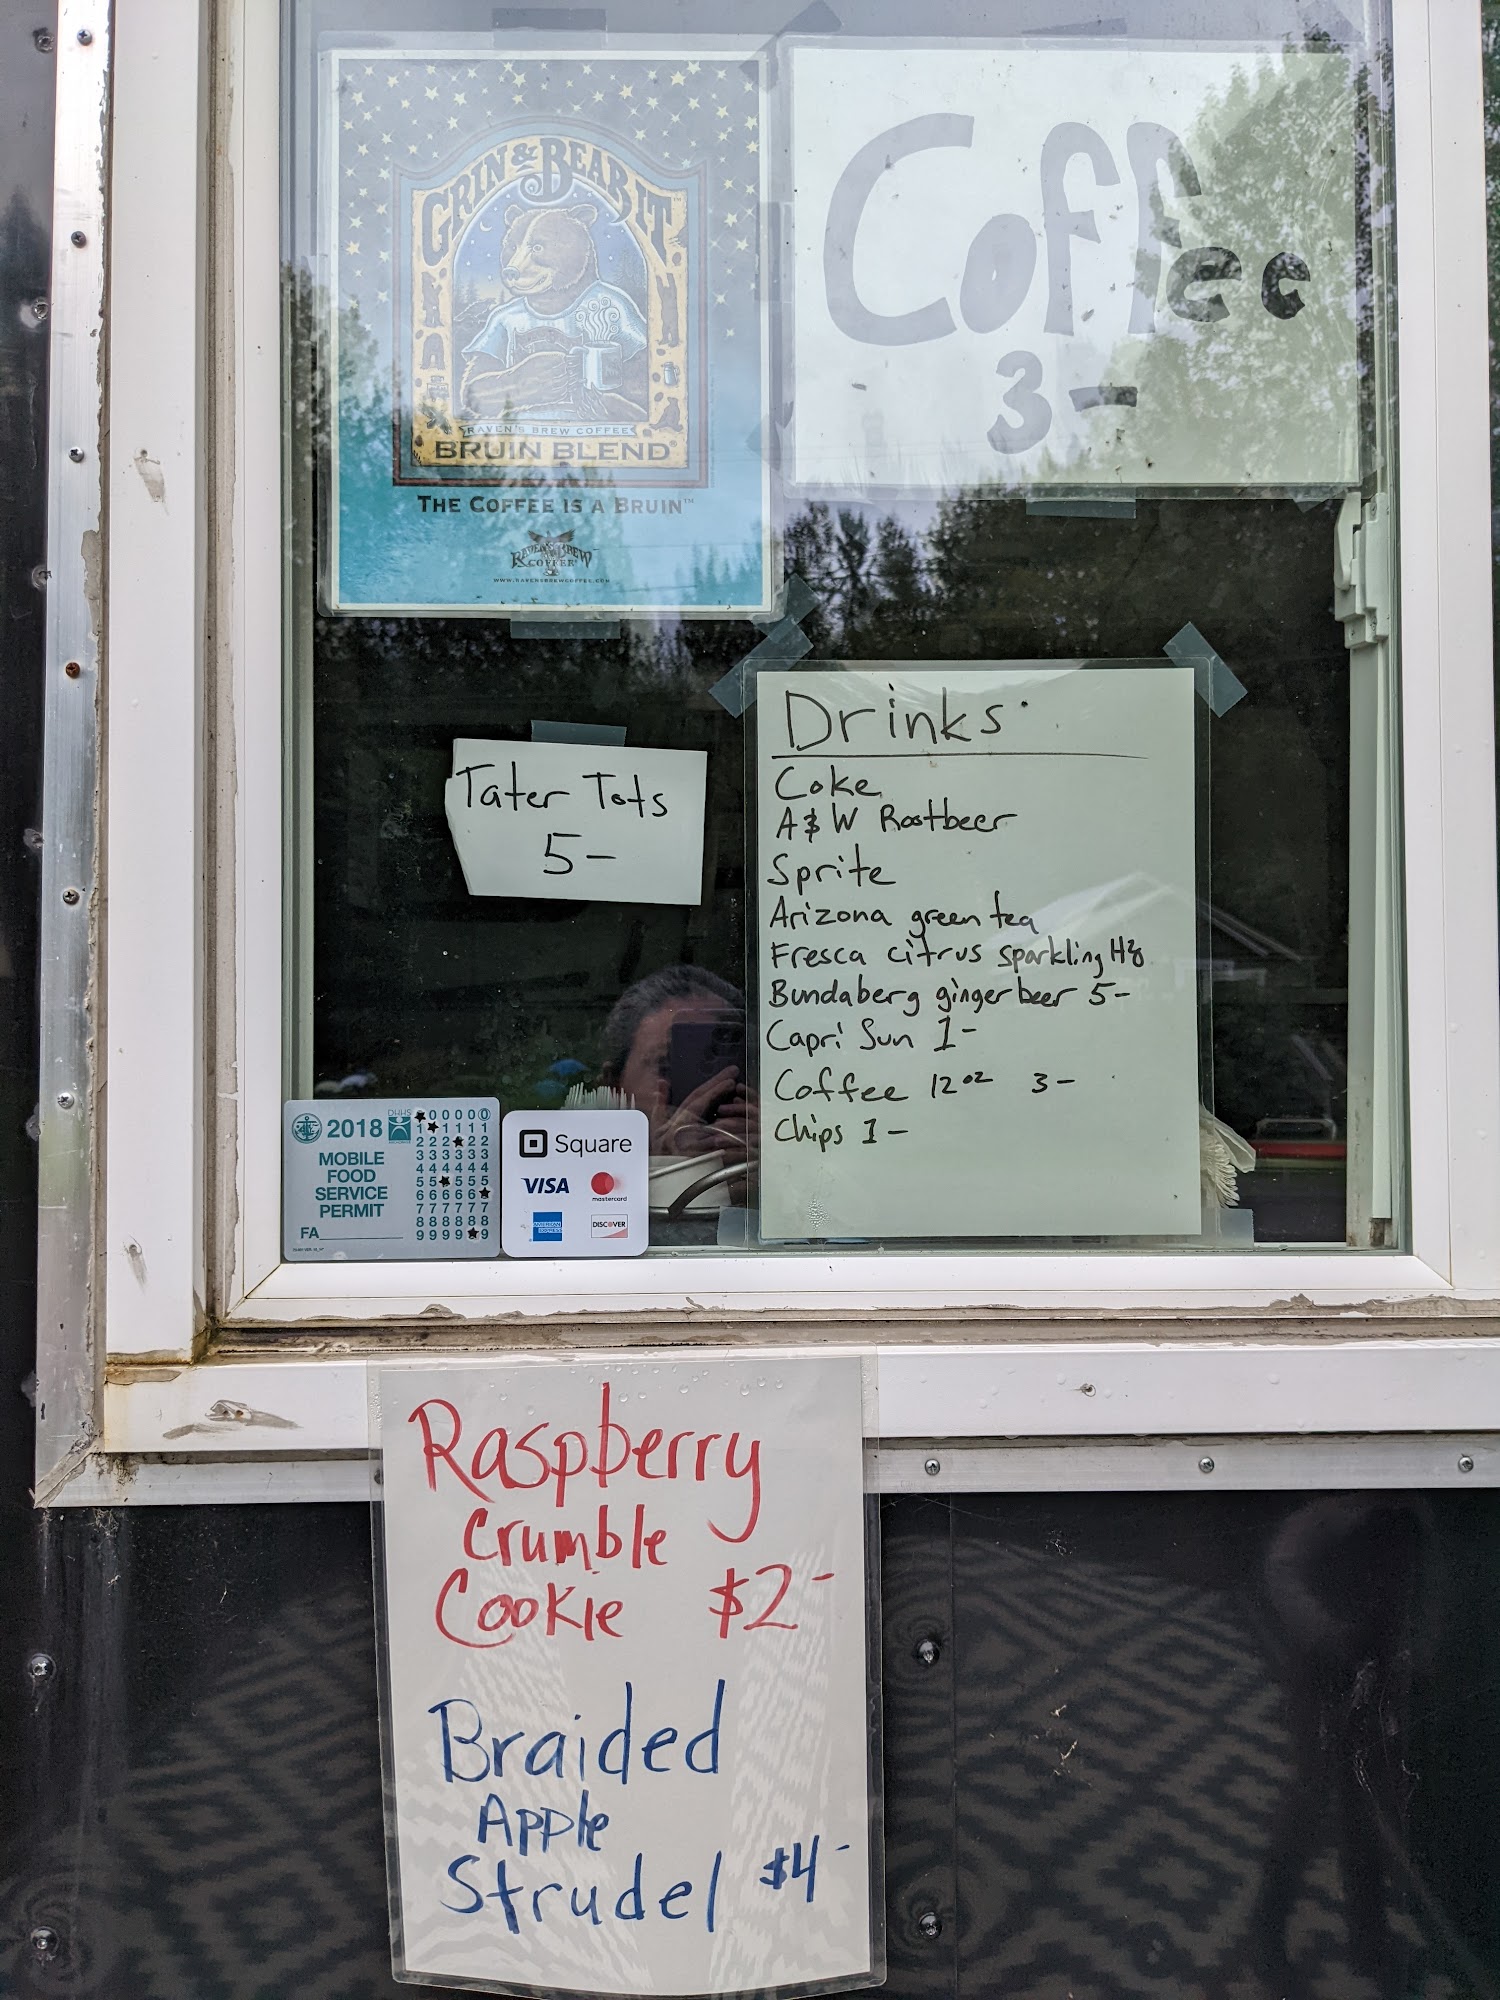 GRIN & BEAR IT
RAVEN'S BREW COFFEE
BRUIN BLEND
THE COFFEE IS A BRUIN™
RAVEN'S BREW
COFFEE
WWW.RAVENSBREWCOFFEE.COM
Coffee
3-
Tater Tots
5-
Drinks
Coke
A&W Rootbeer
Sprite
Arizona green tea
Fresca citrus sparkling H2O
Bundaberg ginger beer 5-
Capri Sun 1-
Coffee 12oz 3-
Chips 1-
2018
DHHS
MOBILE
FOOD
SERVICE
PERMIT
FA
0 0 0 0 0
1 1 1 1 1
2 2 2 2 2
3 3 3 3 3 3
4 4 4 4 4 4
5 5 5 5 5
6 6 6 6 6
7 7 7 7 7 7
8 8 8 8 8 8
9 9 9 9 9
Square
VISA
mastercard
AMERICAN
EXPRESS
DISCOVER
Raspberry
Crumble
Cookie $2-
Braided
Apple
Strudel $4-